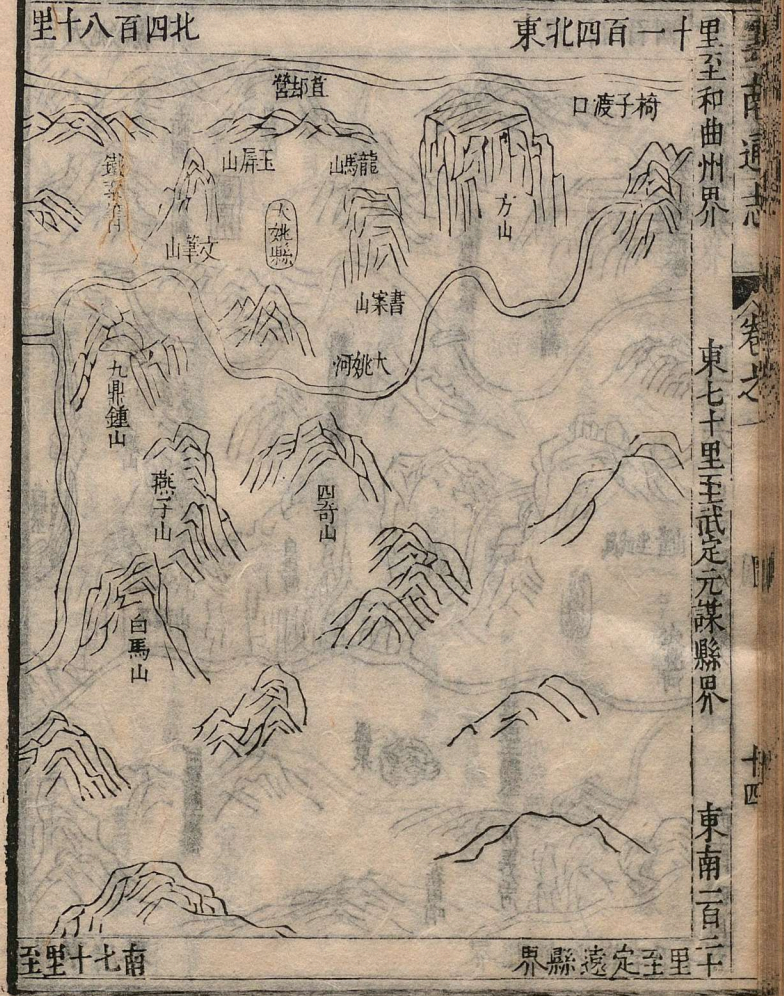 雲南通志
卷之
十四
東北四百一十
里至和曲州界
東七十里至武定元謀縣界
東南二百二十
里至定遠縣界
北四百八十里
南七十里至
椅子渡口
苴却營
方山
龍馬山
玉屏山
大姚縣
文筆山
書案山
大姚河
九鼎鍾山
四奇山
燕子山
白馬山